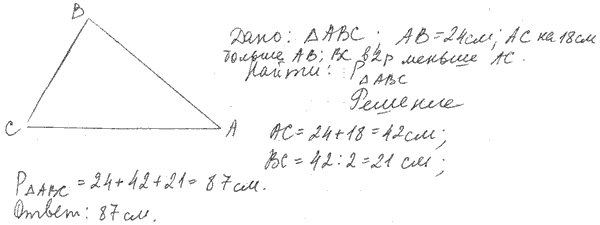 B
C
A
Дано: △ABC; AB=24см; AC на 18см
больше AB; BC в 2р меньше AC.
Найти: P△ABC
Решение
AC=24+18=42см;
BC=42:2=21 см;
P△ABC=24+42+21=87см.
Ответ: 87см.